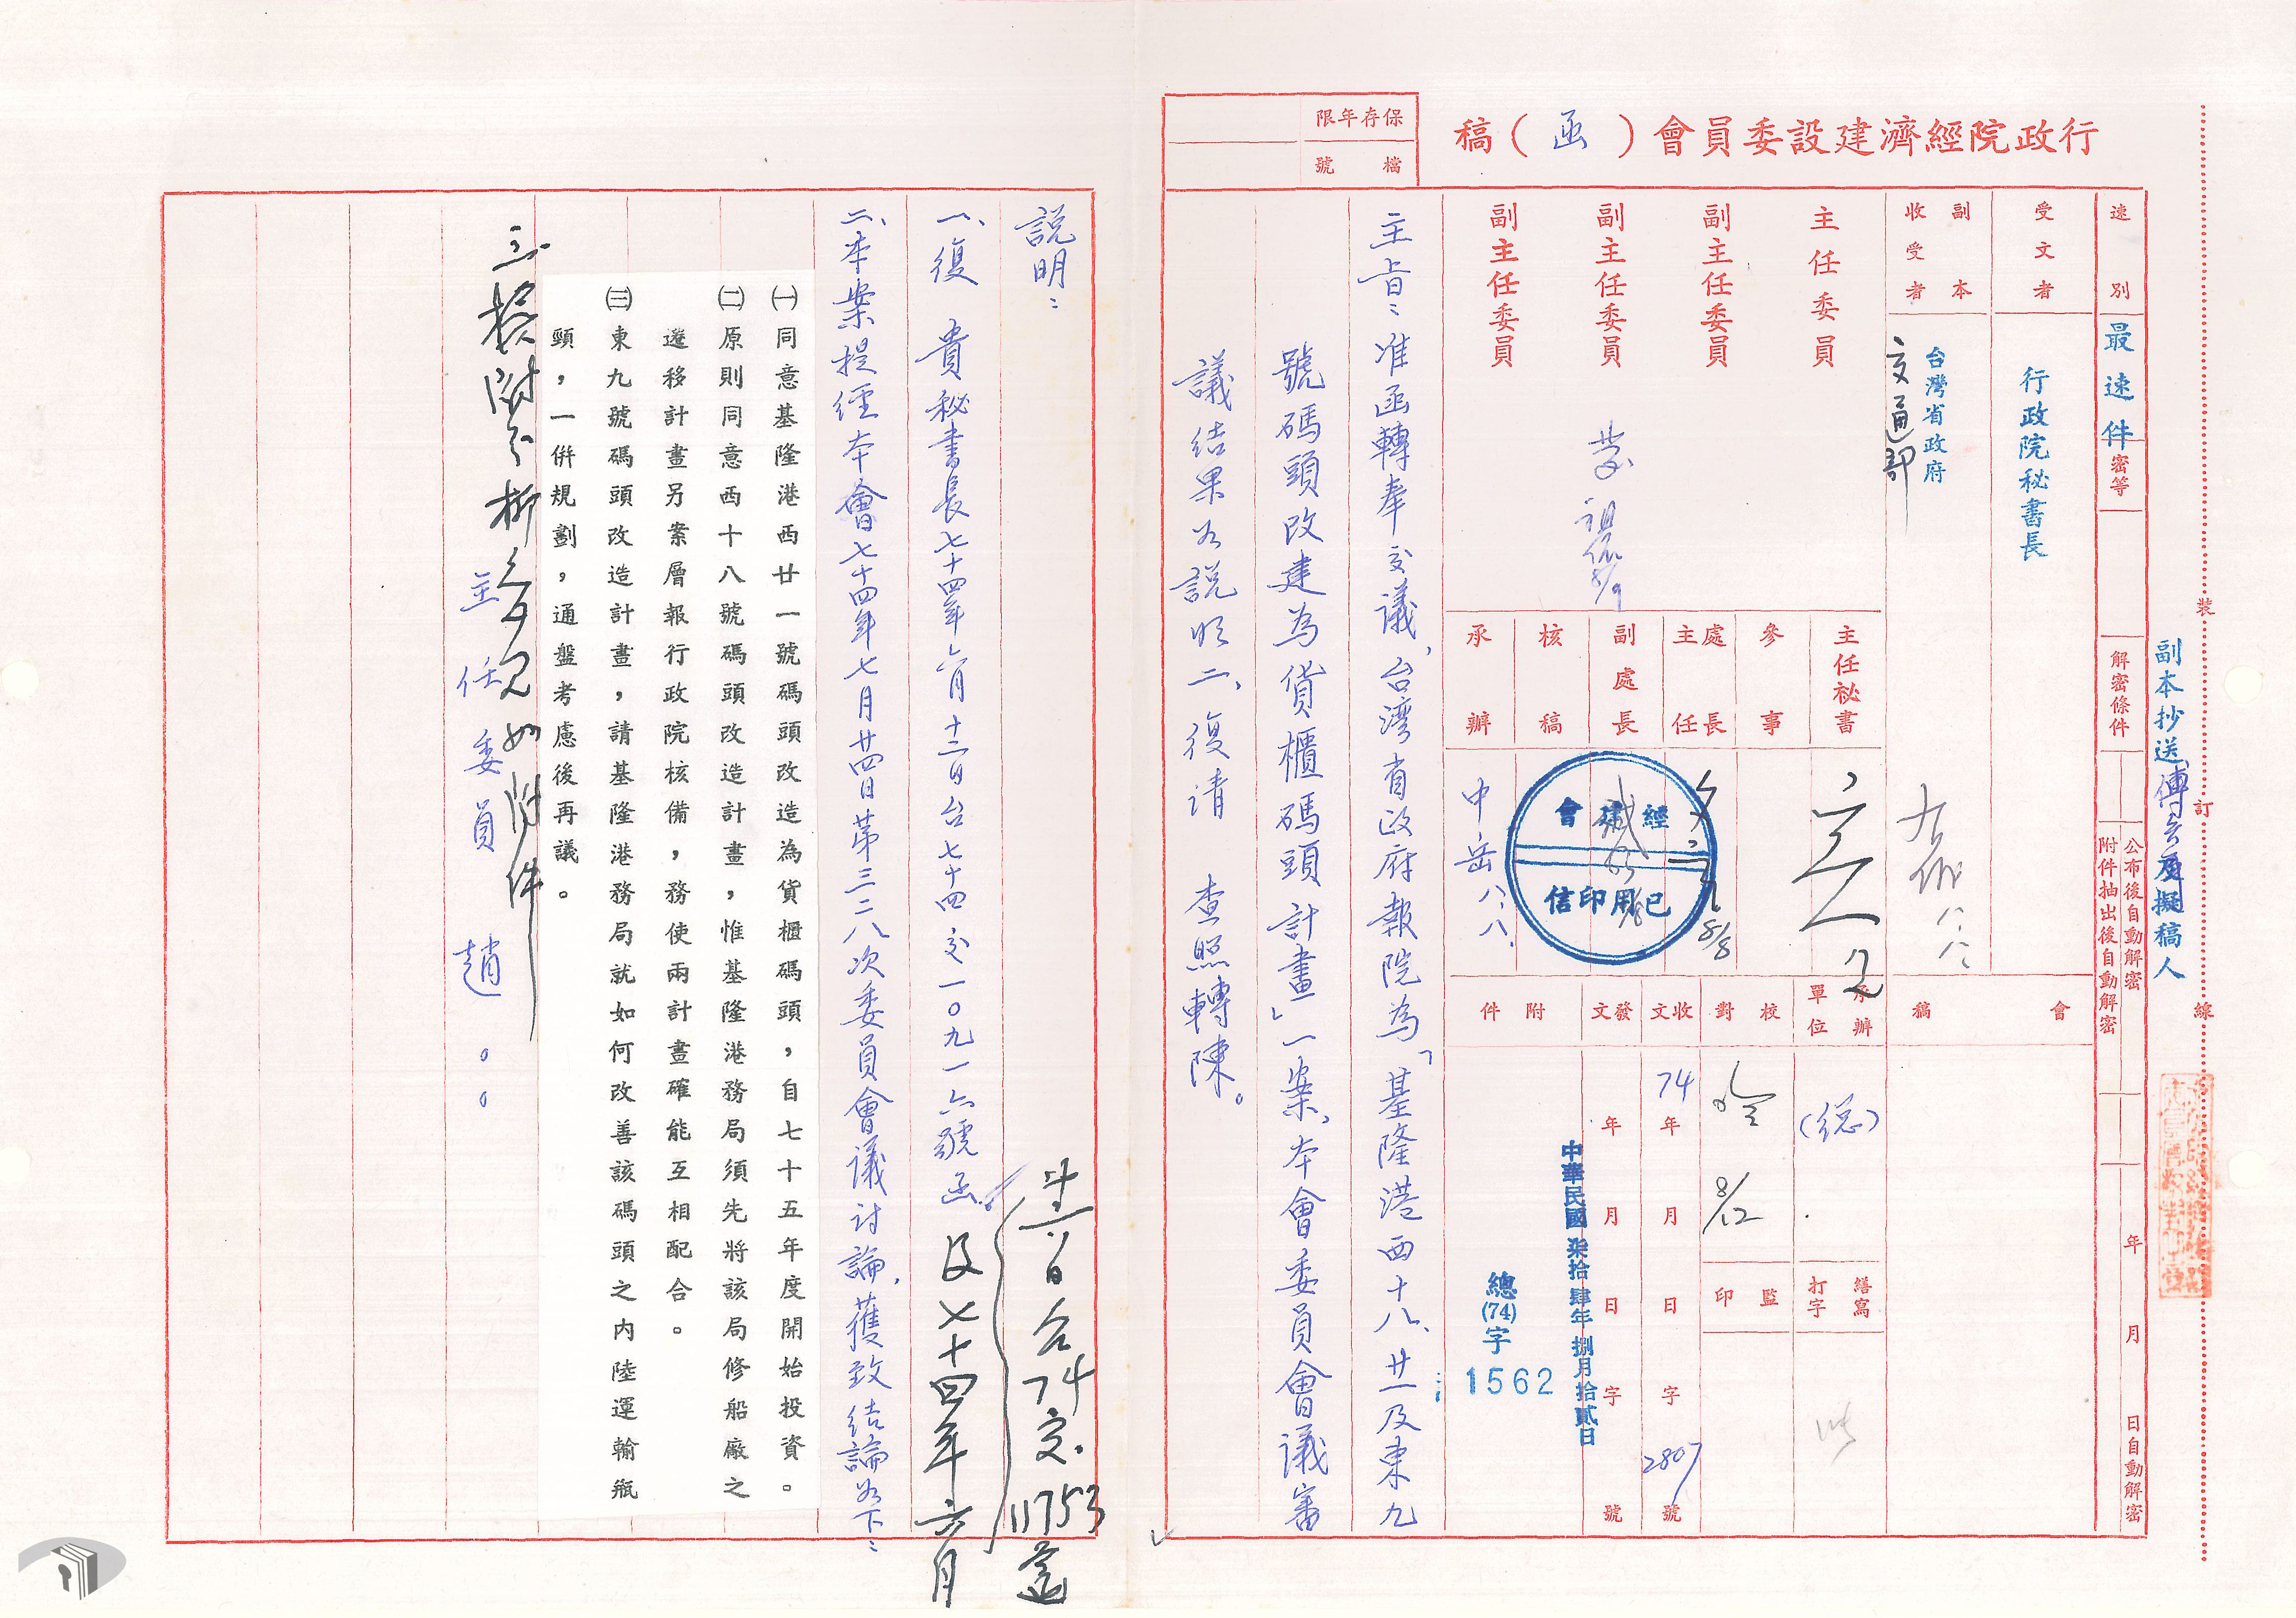 行政院經濟建設委員會（函）稿
保存年限
檔號
速別
最速件
密等
解密條件
公布後自動解密
附件抽出後自動解密
年月日自動解密
受文者
行政院秘書長
副本收受者
台灣省政府
交通部
副本抄送
及擬稿人
裝
訂
線
主任委員
副主任委員
副主任委員
副主任委員
主任祕書
參事
處長
主任
副處長
核稿
承辦
8/8
經建會
已用印信
中岳八、八、
會稿
承辦單位
(總)
校對
8/12
收文
74年月日字2807號
發文
年月日字號
中華民國柒拾肆年捌月拾貳日
總(74)字
1562
附件
繕寫
打字
監印
主旨：准函轉奉交議，台灣省政府報院為「基隆港西十八、廿一及東九
號碼頭改建為貨櫃碼頭計畫」一案，本會委員會議審
議結果如說明二，復請　查照轉陳。
說明：
一、復　貴秘書長七十四年六月十二日台七十四交一○九一六號函
及七十四年六月
日台74交11753
二、本案提經本會七十四年七月廿四日第三二八次委員會議討論，獲致結論如下：
㈠同意基隆港西廿一號碼頭改造為貨櫃碼頭，自七十五年度開始投資。
㈡原則同意西十八號碼頭改造計畫，惟基隆港務局須先將該局修船廠之
遷移計畫另案層報行政院核備，務使兩計畫確能互相配合。
㈢東九號碼頭改造計畫，請基隆港務局就如何改善該碼頭之內陸運輸瓶
頸，一併規劃，通盤考慮後再議。
三、檢附
如附件
主任委員　趙○○